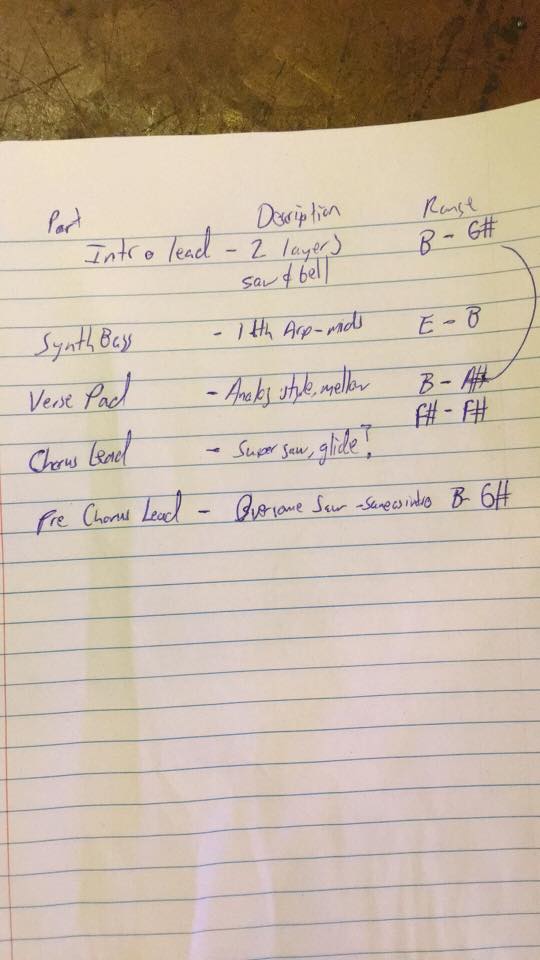 Part Description Range
Intro lead - 2 layers B - G#
saw & bell
Synth Bass - 16th Arp - mids E - B
Verse Pad - Analog style, mellow B - A#
F# - F#
Chorus Lead - Super saw, glide?
Pre Chorus Lead - Saw - same as intro B - G#